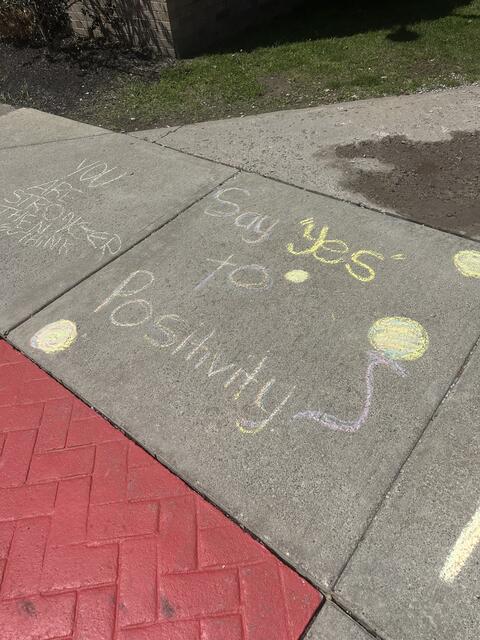 YOU
ARE
STRONGER
THEN U
THINK
Say "yes"
to
Positivity